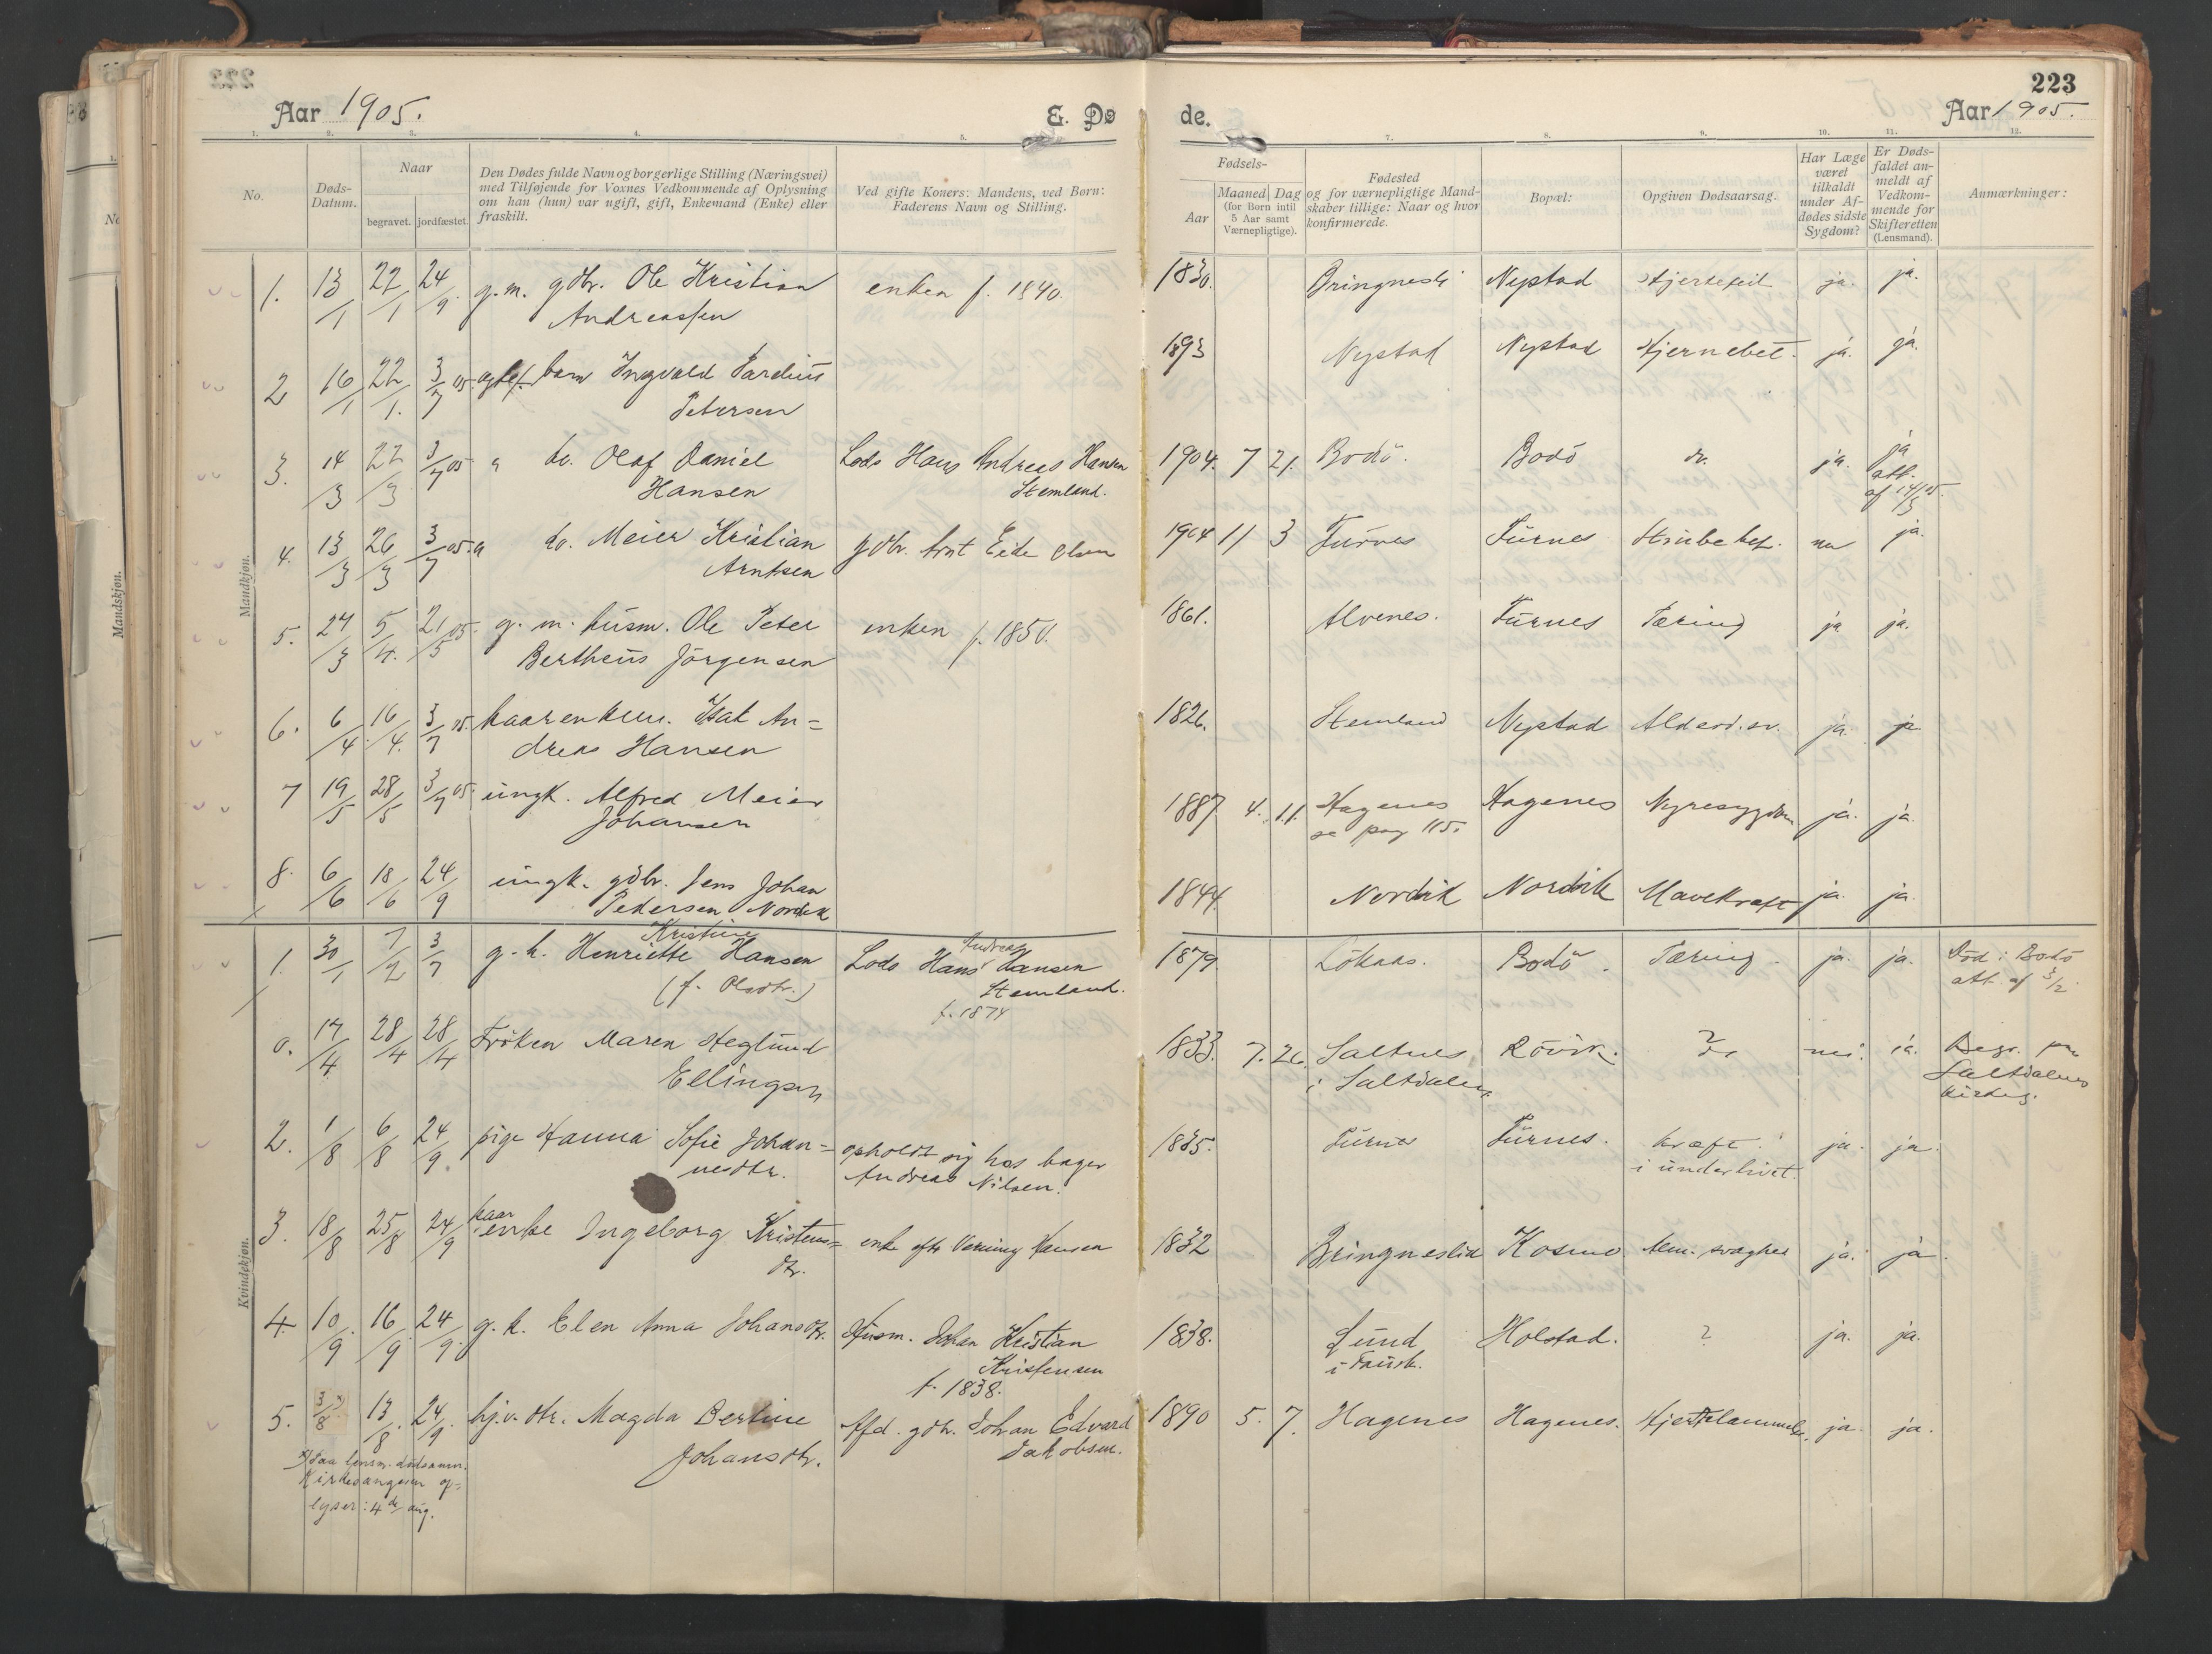 223
Aar 1905.
E. Dø
de.
Aar 1905.
1. 2. 3. 4. 5. 7. 8. 9. 10. 11. 12.
No.
Døds-
Datum.
Naar
begravet. jordfæstet.
Den Dødes fulde Navn og borgerlige Stilling (Næringsvei)
med Tilføjende for Voxnes Vedkommende af Oplysning
om han (hun) var ugift, gift, Enkemand (Enke) eller
fraskilt.
Ved gifte Koners: Mandens, ved Børn:
Faderens Navn og Stilling.
Fødsels-
Aar
Maaned Dag
(for Børn intil
5 Aar samt
Værnepligtige).
Fødested
og for værnepligtige Mand-
skaber tillige: Naar og hvor
konfirmerede.
Bopæl:
Opgiven Dødsaarsag.
Har Læge
været
tilkaldt
under Af-
dødes sidste
Sygdom?
Er Døds-
faldet an-
meldt af
Vedkom-
mende for
Skifteretten
(Lensmand).
Anmærkninger:
Mandkjøn.
1. 13/1 22/1 24/9. g.m. gdbr. Ole Kristian enken f. 1840. 1830. Bringnesli Nystad Hjertefeil ja. ja.
Andreassen
2 16/1 22/1. 3/7 05. barn Ingvald Pareliùs 1893 Nystad Nystad Hjernebet. ja. ja.
Petersen
3. 14/3 22/3 3/7 05 " do. Olaf Daniel Lods Hans Andreas Hansen 1904. 7 21. Bodö. Bodö do. ja. ja
Hansen Stemland. att.
af 14/3 05.
4. 13/3 26/3 3/7 05. " do. Meier Kristian gdbr. Arnt Eide Olsen 1904 11 3 Fùrnes Fùrnes Strùbehof. nei ja.
Arntsen
5. 24/3 5/4. 21/5 05. g. m. hùsm. Ole Peter enken f. 1850. 1861. Alvenes. Fùrnes Tæring ja ja.
Bertheùs Jörgensen
6. 6/4. 16/4. 3/7 05. kaarenkem. Isak An= 1826. Stemland Nystad Alderd.sv. ja. ja
dreas Hansen
7 19/5 28/5 3/7 05. ùngk. Alfred Meier 1887 4. 11. Hagenes Hagenes Nyresygdom ja. ja.
Johansen se pag 115.
8. 6/6 18/6 24/9 ùngk. gdbr. Jens Johan 1844. Nordvik Nordvik Mavekræft ja. ja.
Pedersen Nordvik
Kvindekjøn.
Kristine Andreas
1. 30/1 7/2 3/7 g. k. Henriette Hansen Lods Hans Hansen 1879. Lökaas. Bodö. Tæring. ja. ja. Död i Bodö
(f. Olsdtr.) Stemland. att. af 3/2.
f. 1874
0. 17/4 28/4 28/4 Fröken Maren Heglùnd 1833. 7. 26. Saltnes Rövik. ? nei. ja. Begr. paa
Ellingsen i Saltdalen Saltdalens
kirkeg.
2. 1/8 6/8 24/9. pige Hanna Sofie Johan= opholdt sig hos bager 1835. Fùrnes Fùrnes. kræft ja. ja.
nesdtr. Andreas Nilsen. i ùnderlivet.
kaar
3. 18/8 25/8 24/9 enke Ingeborg Kristens= enke efter Hansen 1832 Bringneslid Kosmo Alm. svaghed ja. ja.
dtr.
4. 10/9 16/9 24/9. g. k. Elen Anna Johansdtr. Hùsm. Johan Kristian 1838. Lùnd Holstad. ? ja. ja.
Kristensen i Faùsk.
f. 1838.
5. 3/8 x) 13/8. 24/9. hj.v. dtr. Magda Bertine Afd. gdbr. Johan Edvard 1890 5. 7. Hagenes Hagenes. Hjertelammelse. ja. ja.
Johansdtr. Jakobsen.
x) Paa lensm. dödsanm.
Kirkesangeren op=
lyser: 4de aùg.
Mandskjøn.